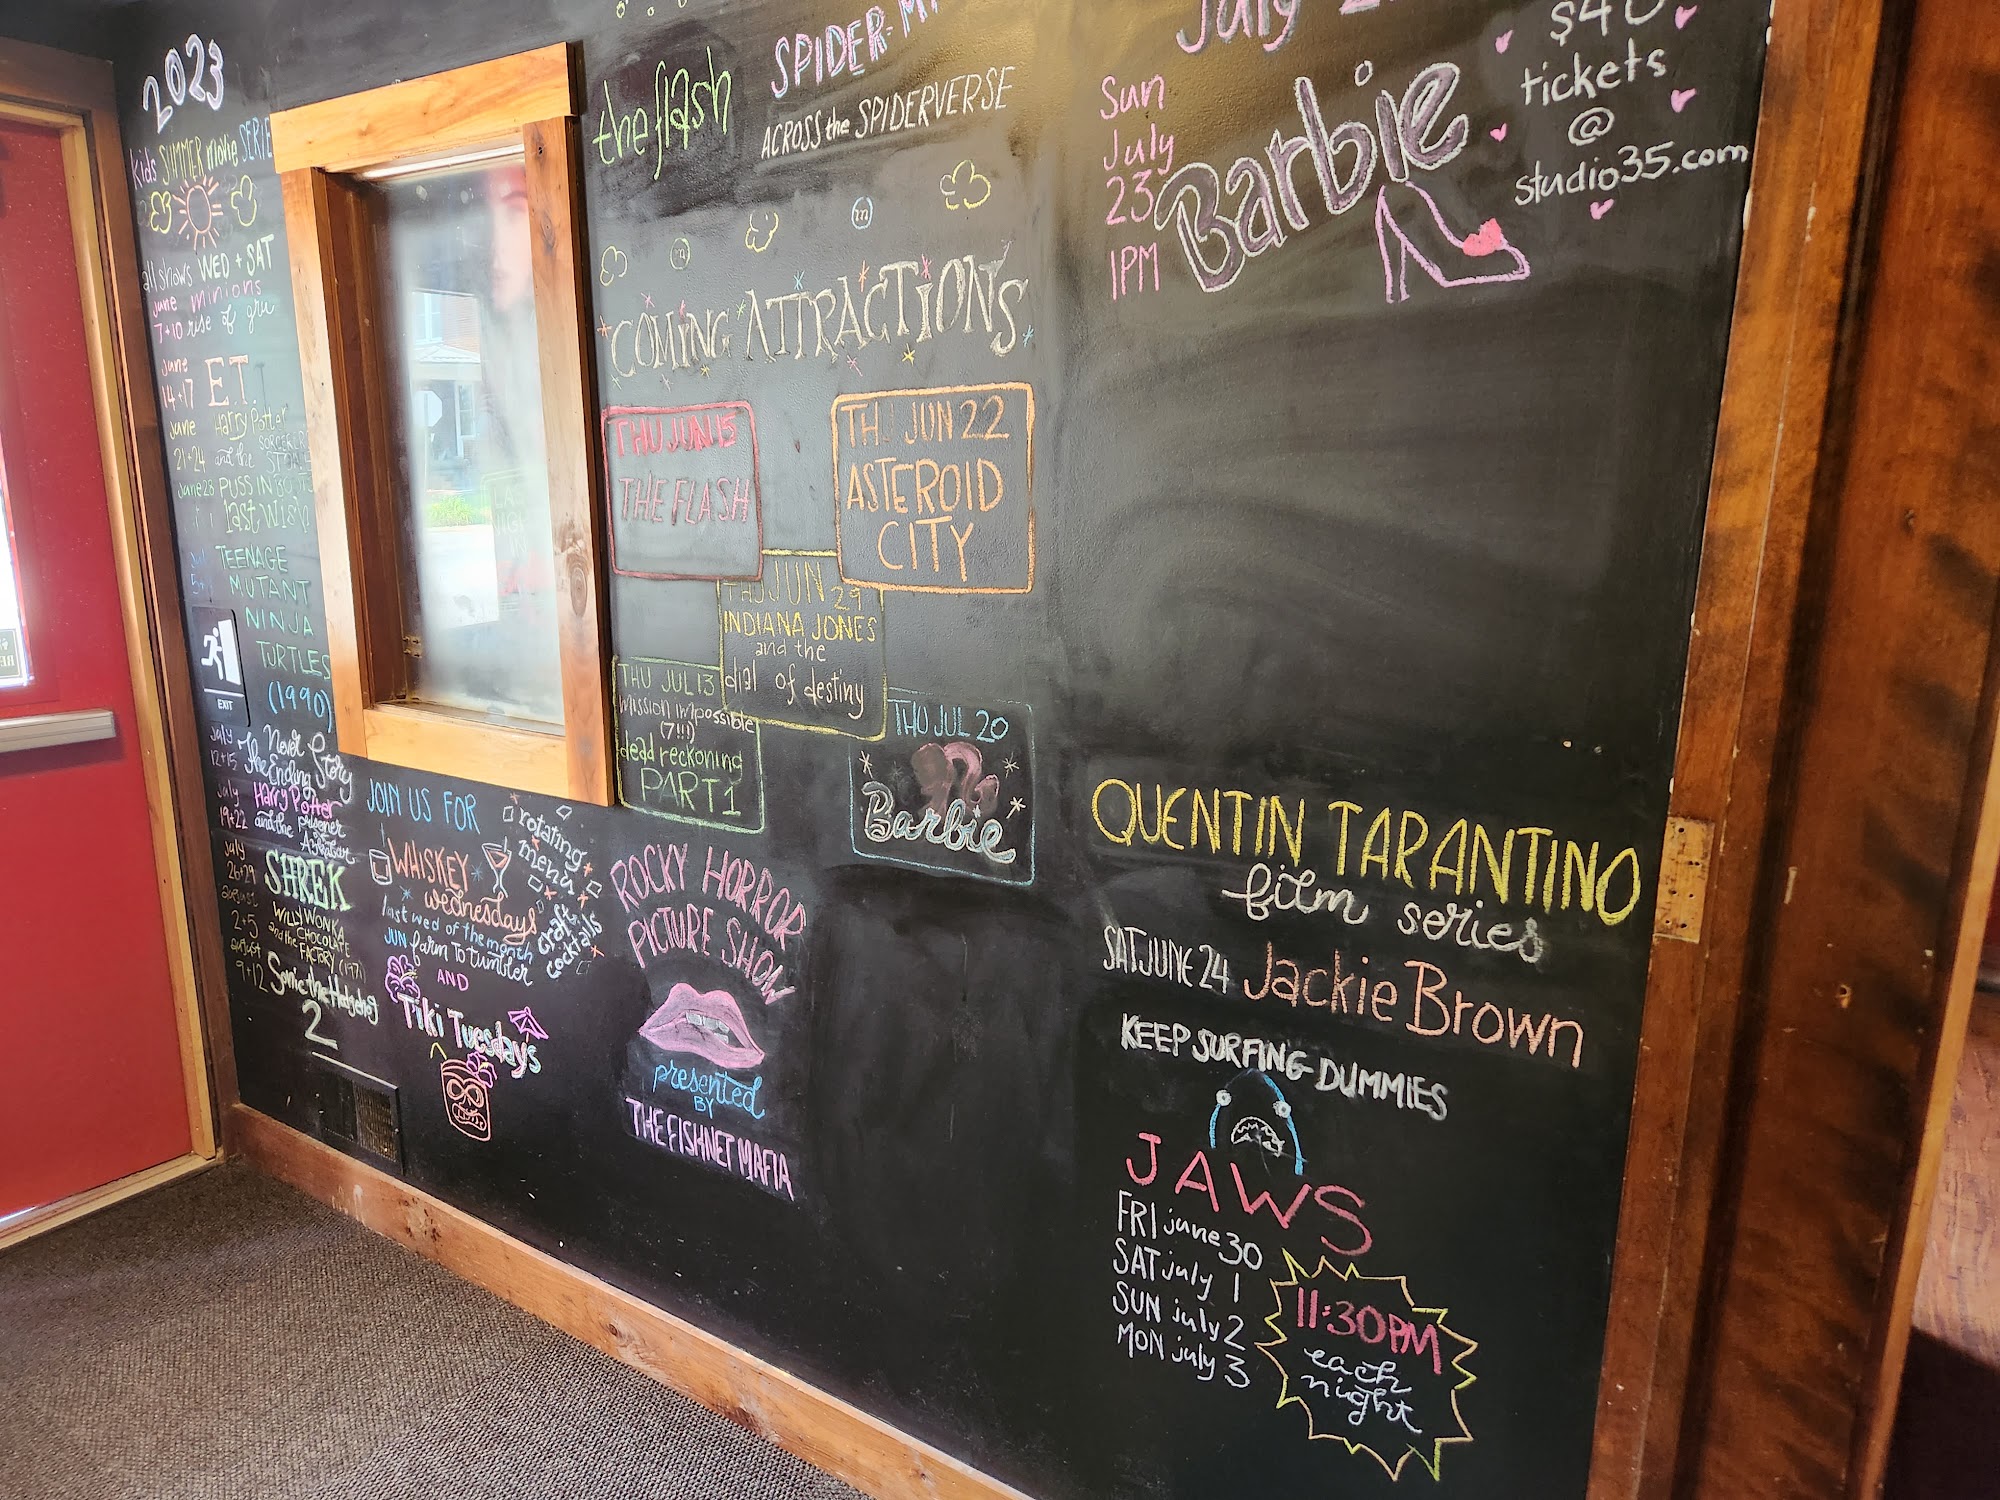 2023
kids SUMMER movie SERIE
all shows WED + SAT
june minions
7+10 rise of gru
june
14+17 E.T.
june Harry Potter
21+24 and the SORCER
STONE
June 28 PUSS IN BOOTS
last wish
TEENAGE
MUTANT
NINJA
TURTLES
(1990)
EXIT
july Never
12+15 The Ending Story
july Harry Potter
19+22 and the Prisoner
Azkaban
july
26+29 SHREK
august WILLY WONKA
2+5 and the CHOCOLATE
FACTORY (1971)
august
9+12 Sonic the Hedgehog
2
JOIN US FOR
WHISKEY
wednesdays
last wed of the month
JUN farm to tumbler
rotating
menu
craft
cocktails
AND
Tiki Tuesdays
the flash
SPIDER-M
ACROSS the SPIDERVERSE
COMING ATTRACTIONS
THU JUN 15
THE FLASH
THU JUN 22
ASTEROID
CITY
THU JUN 29
INDIANA JONES
and the
dial of destiny
THU JUL 13
mission impossible
(7!!!)
dead reckoning
PART 1
THU JUL 20
Barbie
ROCKY HORROR
PICTURE SHOW
presented
BY
THE FISHNET MAFIA
July
Sun
July
23
1PM
Barbie
$40
tickets
@
studio35.com
QUENTIN TARANTINO
film series
SAT JUNE 24 Jackie Brown
KEEP SURFING DUMMIES
JAWS
FRI june 30
SAT july 1
SUN july 2
MON july 3
11:30PM
each
night